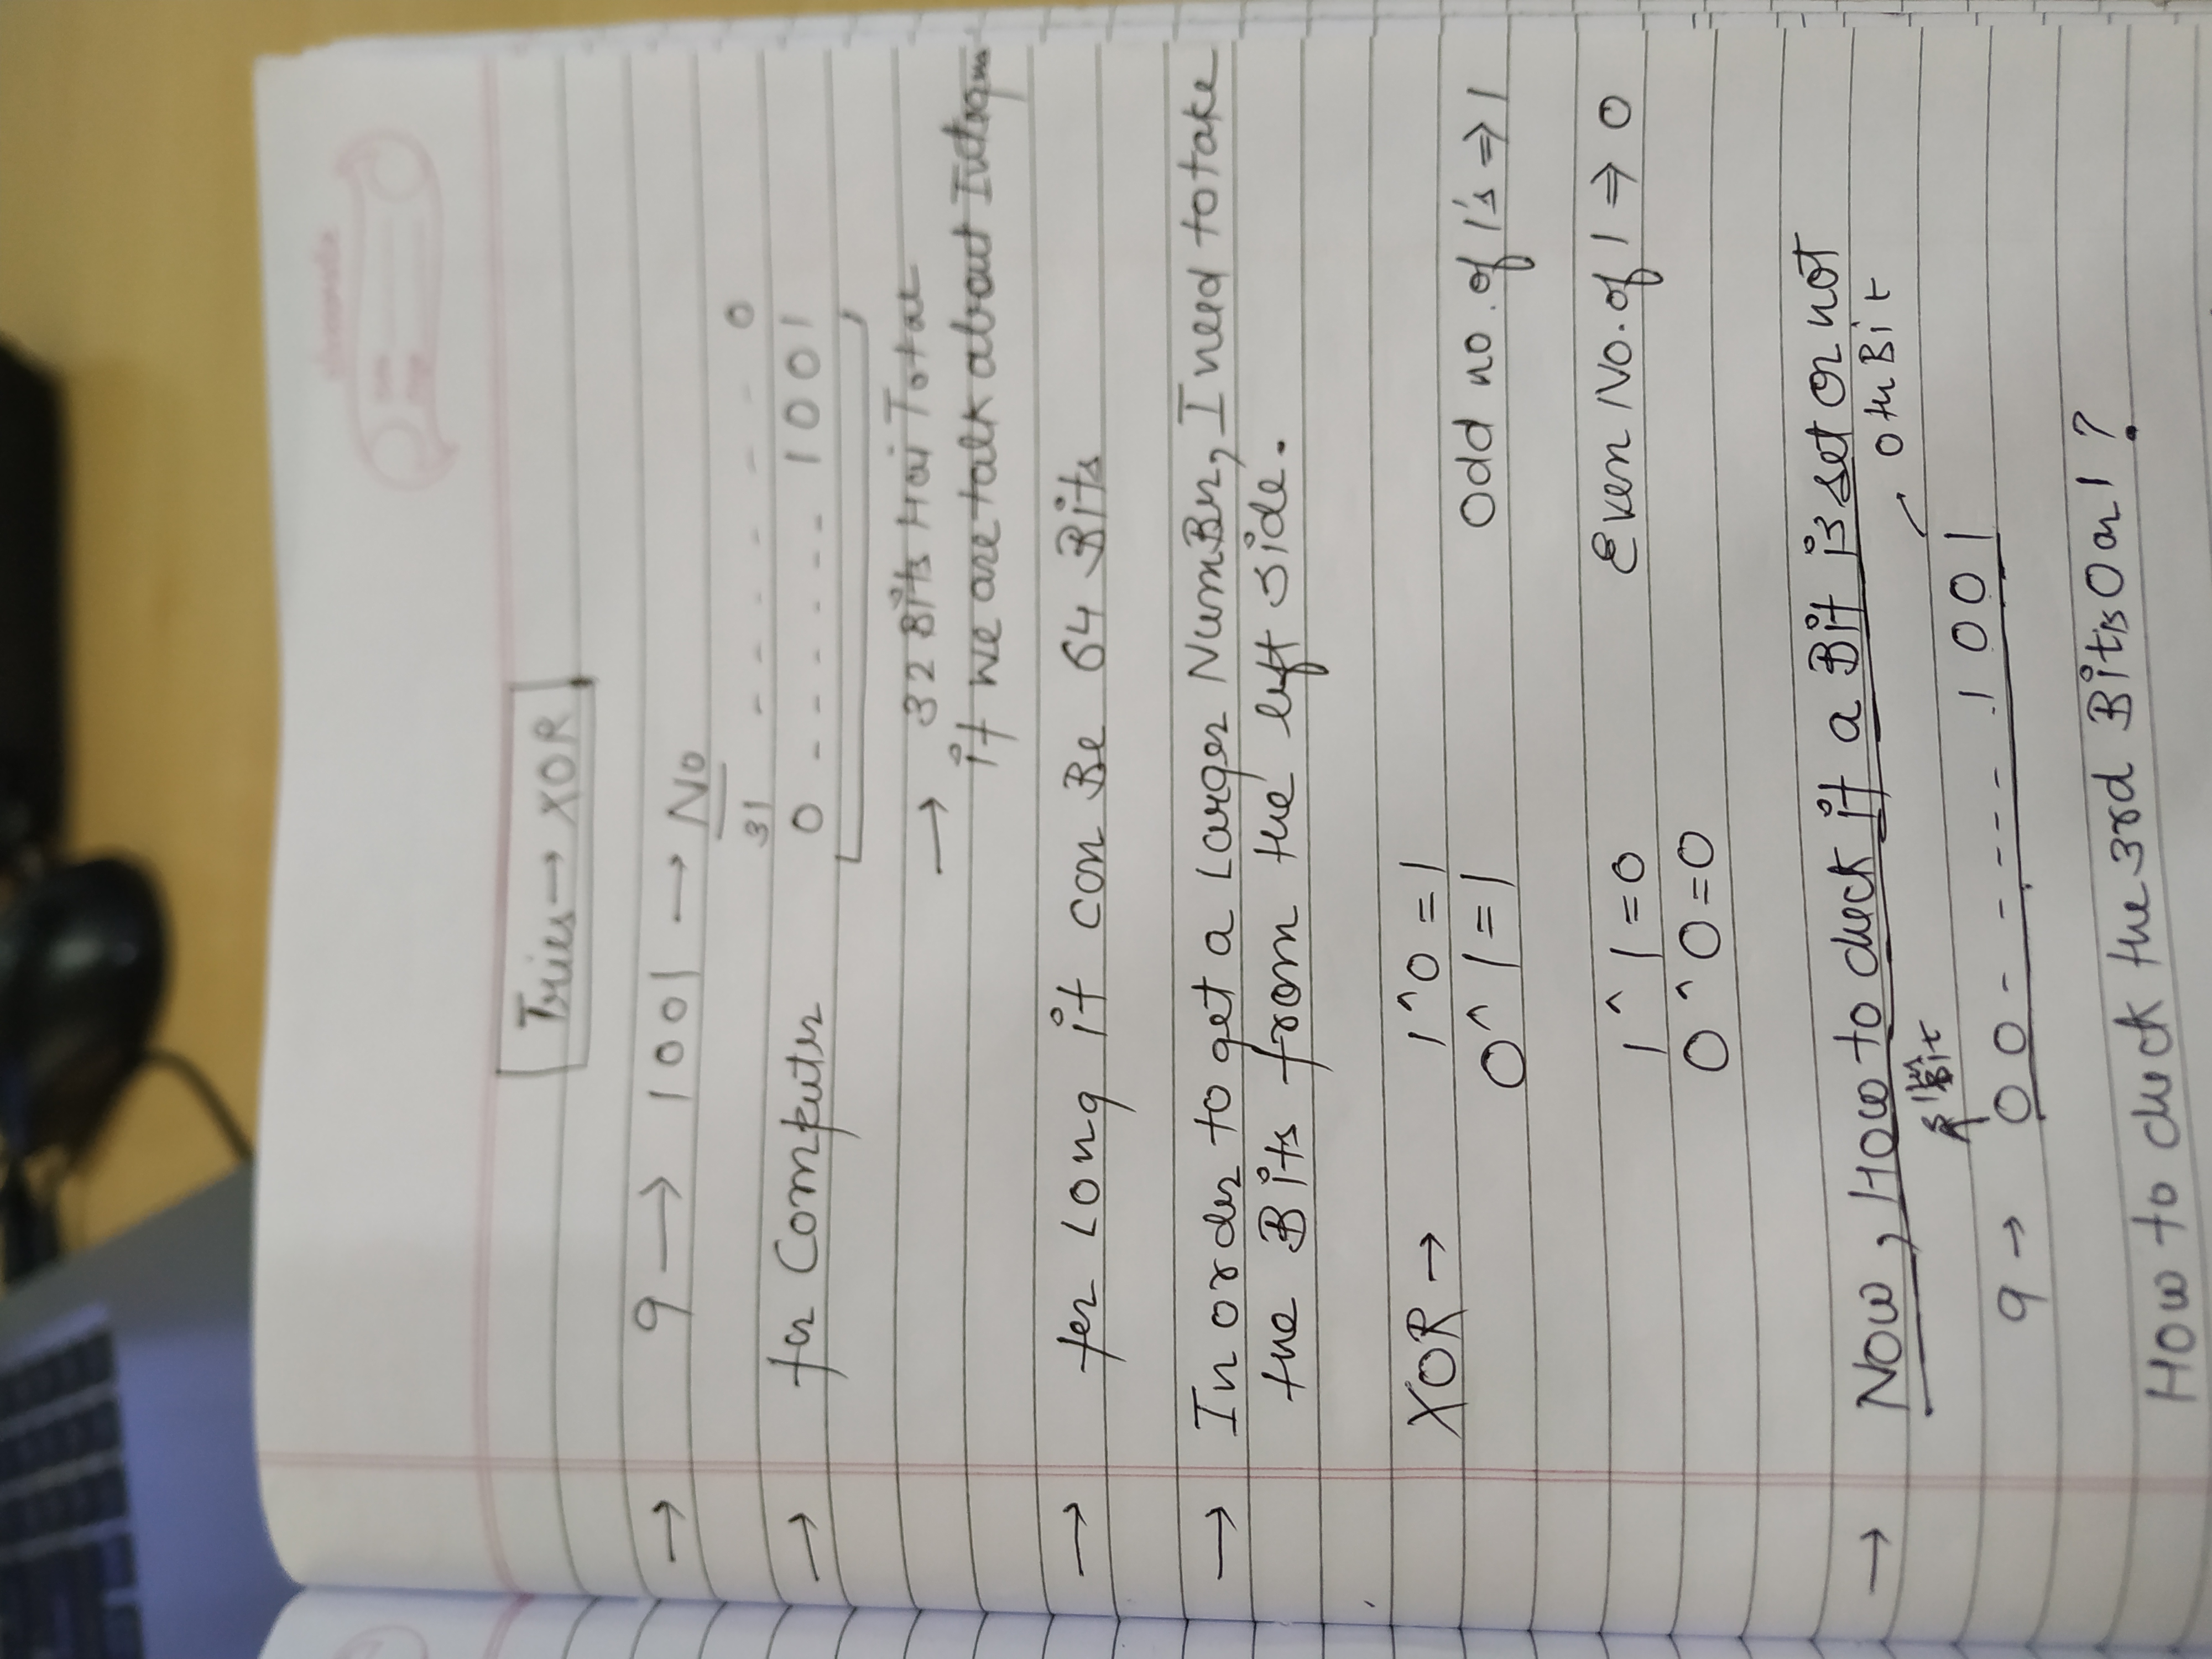 Tries → XOR
→ 9 → 1001 → No
31 - - - - - - - 0
→ for Computer 0 - - - - - - 1001
→ 32 Bits Hai Total
if we are talk about Integer
→ for Long it can Be 64 Bits
→ In order to get a Larger NumBer, I need to take
the Bits from the left side.
XOR → 1^0 = 1
0^1 = 1 Odd no. of 1's ⇒ 1
1^1 = 0 Even No. of 1 ⇒ 0
0^0 = 0
→ Now, How to check if a Bit is set or not
31th Bit 0th Bit
9 → 00 - - - - - - 1001
How to check the 3rd Bit is 0 or 1 ?